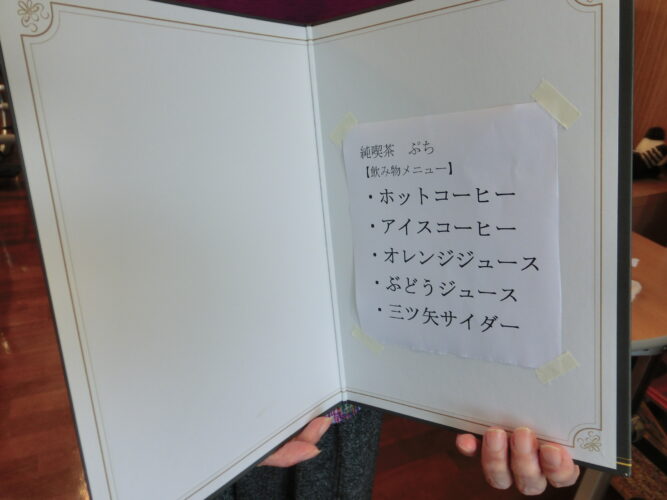 純喫茶　ぷち
【飲み物メニュー】
・ホットコーヒー
・アイスコーヒー
・オレンジジュース
・ぶどうジュース
・三ツ矢サイダー